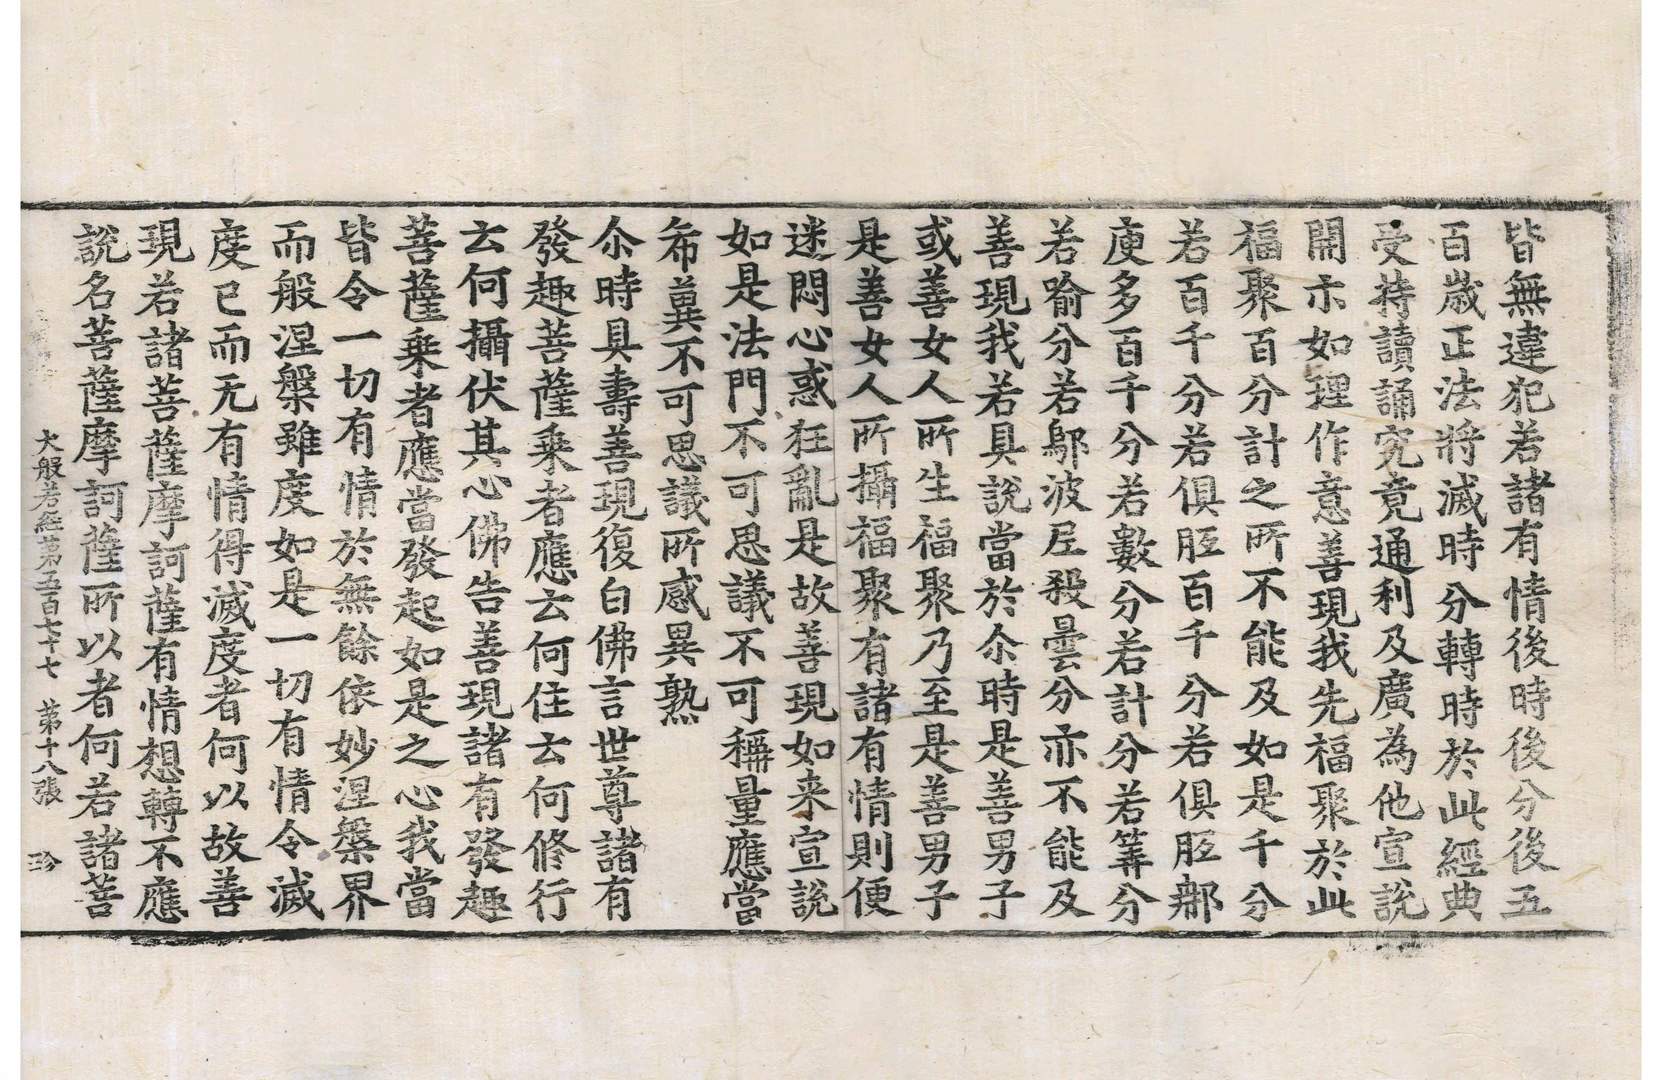 皆無違犯若諸有情後時後分後五
百歲正法將滅時分轉時於此經典
受持讀誦究竟通利及廣為他宣說
開示如理作意善現我先福聚於此
福聚百分計之所不能及如是千分
若百千分若俱胝百千分若俱胝那
庾多百千分若數分若計分若筭分
若喻分若鄔波尼殺曇分亦不能及
善現我若具說當於尒時是善男子
或善女人所生福聚乃至是善男子
是善女人所攝福聚有諸有情則便
迷悶心惑狂亂是故善現如来宣說
如是法門不可思議不可稱量應當
希兾不可思議所感異熟
尒時具壽善現復白佛言世尊諸有
發趣菩薩乗者應云何住云何修行
云何攝伏其心佛告善現諸有發趣
菩薩乗者應當發起如是之心我當
皆令一切有情於無餘依妙涅槃界
而般涅槃雖度如是一切有情令滅
度已而无有情得滅度者何以故善
現若諸菩薩摩訶薩有情想轉不應
說名菩薩摩訶薩所以者何若諸菩
大般若經第五百七十七 第十八張 珎